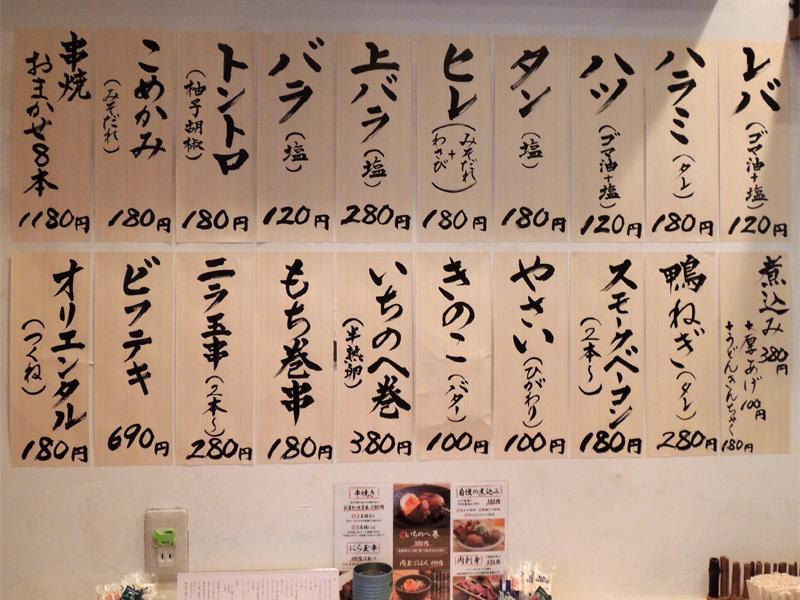 レバ
(ゴマ油+塩)
120円
ハラミ
(タレ)
180円
ハツ
(ゴマ油+塩)
120円
タン
(塩)
180円
ヒレ
(みそだれ
+
わさび)
180円
上バラ
(塩)
280円
バラ
(塩)
120円
トントロ
(柚子胡椒)
180円
こめかみ
(みそだれ)
180円
串焼
おまかせ8本
1180円
煮込み
380円
+厚あげ
100円
+うどんきんちゃく
180円
鴨ねぎ
(タレ)
280円
スモークベーコン
(2本〜)
180円
やさい
(ひがわり)
100円
きのこ
(バター)
100円
いちのへ巻
(半熟卵)
380円
もち巻串
180円
ニラ玉串
(2本〜)
280円
ビフテキ
690円
オリエンタル
(つくね)
180円
串焼き
にら玉串
いちのへ巻
380円
自慢の煮込み
肉刺身